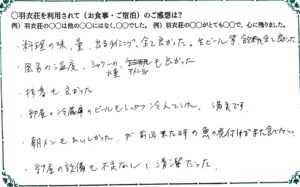 〇羽衣荘を利用されて（お食事・ご宿泊）のご感想は？
例）羽衣荘の〇〇は他の〇〇にはなく、〇〇でした。 例）羽衣荘の〇〇がとても〇〇で、心に残りました。
・料理の味、量、出るタイミング、全て良かった。生ビール等、飲料も全て良かった
・風呂の温度、シャワーの
も良かった
・接客も良かった
・部屋の冷蔵庫のビールもしっかり冷えていました。満足です。
・朝メシもおいしかった、が前回来た時の魚の煮付けがまた食べたい。
・部屋の設備も不足なし、清潔だった